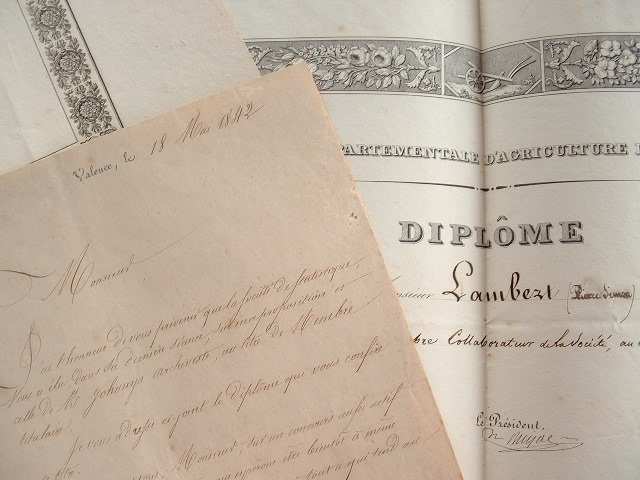 Valence, le 18 Mai 1842
Monsieur,
J'ai l'honneur de vous prévenir que la Société de statistique,
Vous a élu dans sa dernière séance, sur ma proposition et
celle de Mr archiviste, au titre de Membre
titulaire.
Je vous adresse ci joint le diplôme que vous confère
Monsieur, sur un concours aussi actif
bientôt à même
tout ce qui tend au
PARTEMENTALE D'AGRICULTURE
DIPLÔME
onsieur Lambert (Pierre Simon)
bre Collaborateur de la Société, au
Le Président,